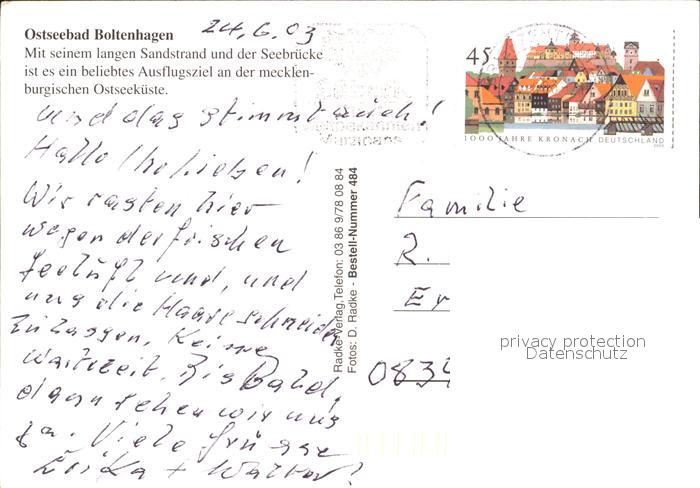 Ostseebad Boltenhagen
Mit seinem langen Sandstrand und der Seebrücke
ist es ein beliebtes Ausflugsziel an der mecklen-
burgischen Ostseeküste.
24.6.03
und das stimmt auch!
Hallo Ihr Lieben!
Wir rasten hier
wegen der frischen
Seeluft und, und
uns die Haare schneiden
zu lassen, Keine
Wartezeit. Bis Bald,
dann sehen wir uns
ja. Viele Grüsse
Erika + Walter!
Radke-Verlag, Telefon: 03 86 9/78 08 84
Fotos: D. Radke - Bestell-Nummer 484
45
1000 JAHRE KRONACH DEUTSCHLAND
2003
Familie
R.
Er
0834
privacy protection
Datenschutz